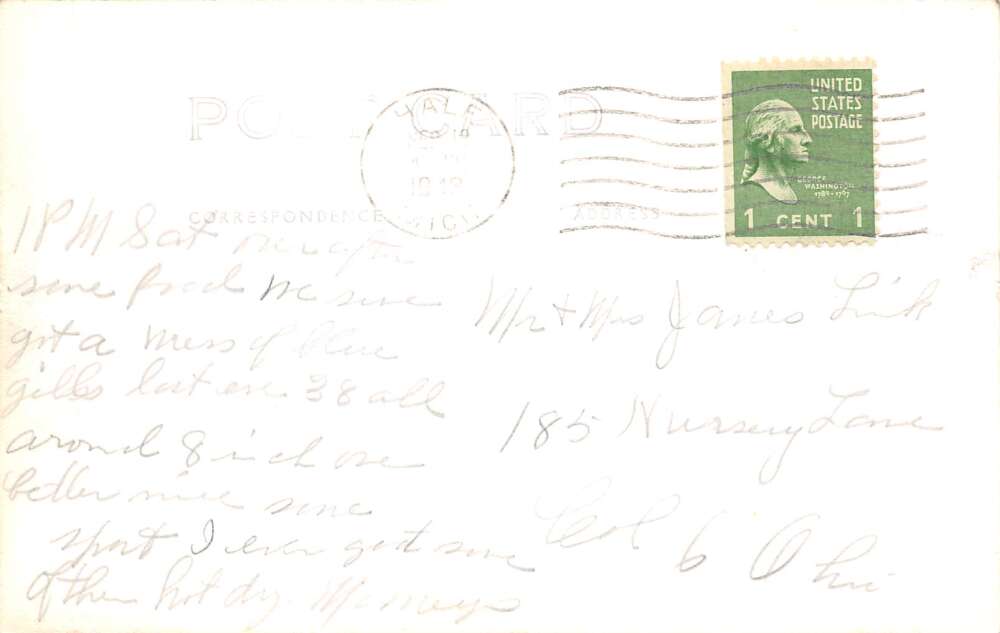 POST CARD
HALE
1949
MICH
UNITED
STATES
POSTAGE
GEORGE
WASHINGTON
1789-1797
1 CENT 1
CORRESPONDENCE
ADDRESS
1 PM Sat
some food we sure
got a mess of blue
gills last eve 38 all
around 8 inch one
better nice some
sport I ever got some
of them hot dg.
Mr + Mrs James Link
185 Nursery Lane
Col 6 Ohio